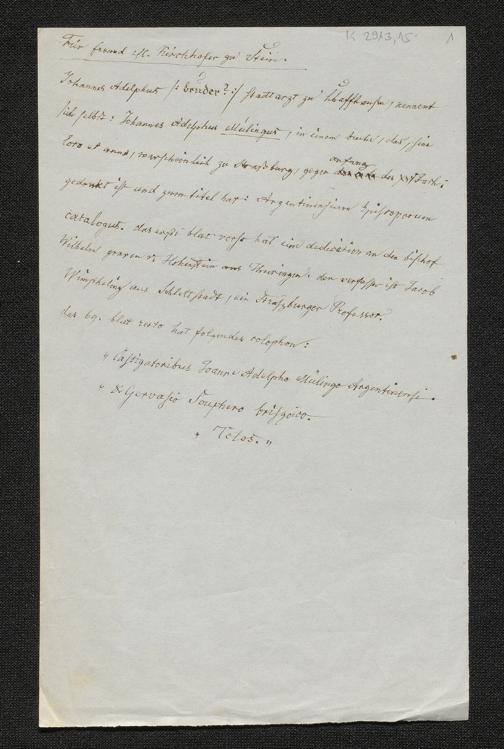 K 2913,15 1
Für freund M. Kirchhofer zu Stein.
Johannes Adelphus /: bruder? :/ stadtarzt zu Schaffhausen, nennent
sich selbst: Johannes Adelphus Mülingus, in einem buche, das, sine
loco et anno, warscheinlich zu Straßburg, gegen anfang des XVI Jarh:
gedrukt ist und zum titel hat: Argentinensium Episcoporum
catalogus. das erste blat verso hat eine dedication an den bischof
Wilhelm graven v. Hohenstein aus Thüringen. der verfasser ist Jacob
Wimpheling aus Schlettstadt, ein Straßburger Professor.
das 69. blat recto hat folgendes colophon:
" Castigatoribus Joanne Adelpho Mülingo Argentinensi.
" & Gervasio Souphero brisgoico.
" Telos. "